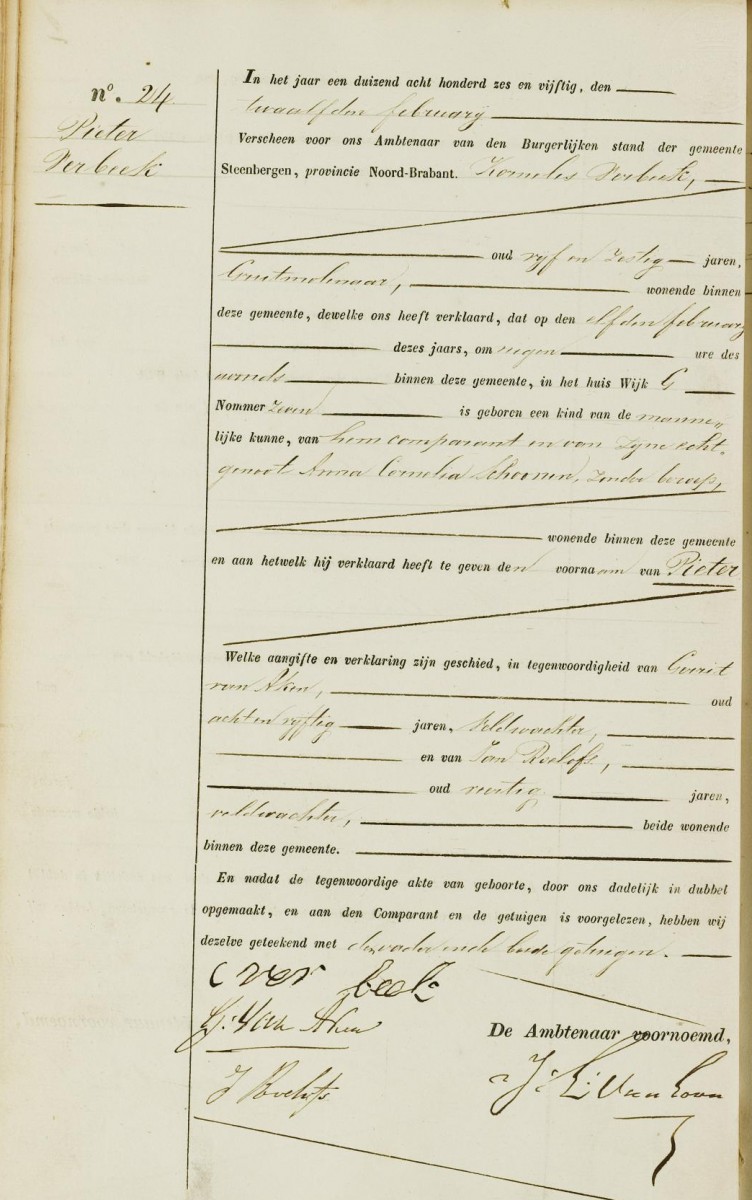 nº. 24
Pieter
Verbeek
In het jaar een duizend acht honderd zes en vijftig, den
twaalfden februarij
Verscheen voor ons Ambtenaar van den Burgerlijken stand der gemeente
Steenbergen, provincie Noord-Brabant. Kornelis Verbeek,
oud vijf en zestig jaren,
Grutmolenaar, wonende binnen
deze gemeente, dewelke ons heeft verklaard, dat op den elfden februarij
dezes jaars, om negen ure des
avonds binnen deze gemeente, in het huis Wijk G
Nommer zeven is geboren een kind van de manne„
lijke kunne, van hem comparant en van zijne echt-
genoot Anna Cornelia Schoonen, zonder beroep,
wonende binnen deze gemeente
en aan hetwelk hij verklaard heeft te geven den voornaam van Pieter
Welke aangifte en verklaring zijn geschied, in tegenwoordigheid van Gerrit
van Aken, oud
acht en vijftig jaren, Veldwachter,
en van Jan Roelofs,
oud veertig jaren,
veldwachter, beide wonende
binnen deze gemeente.
En nadat de tegenwoordige akte van geboorte, door ons dadelijk in dubbel
opgemaakt, en aan den Comparant en de getuigen is voorgelezen, hebben wij
dezelve geteekend met den vader en de beide getuigen.
C ver beek
G: Van Aken
De Ambtenaar voornoemd,
J Roelofs
Van Loon